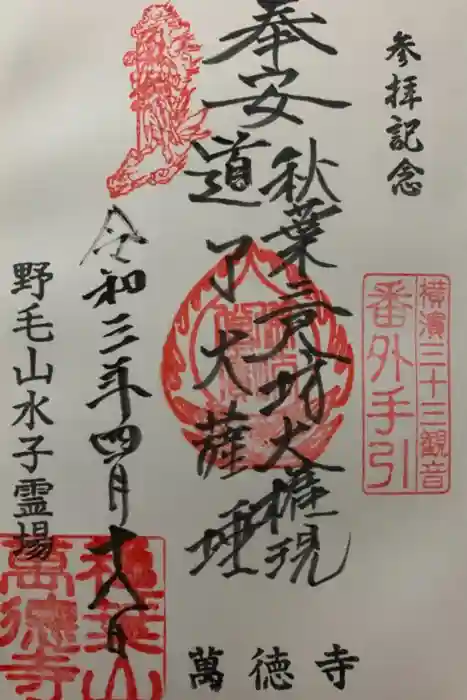 参拝記念
横濱三十三観音
番外手引
奉安
秋葉三尺坊大権現
道了大薩埵
令和三年四月十八日
野毛山水子霊場
秋葉山
萬徳寺
萬徳寺